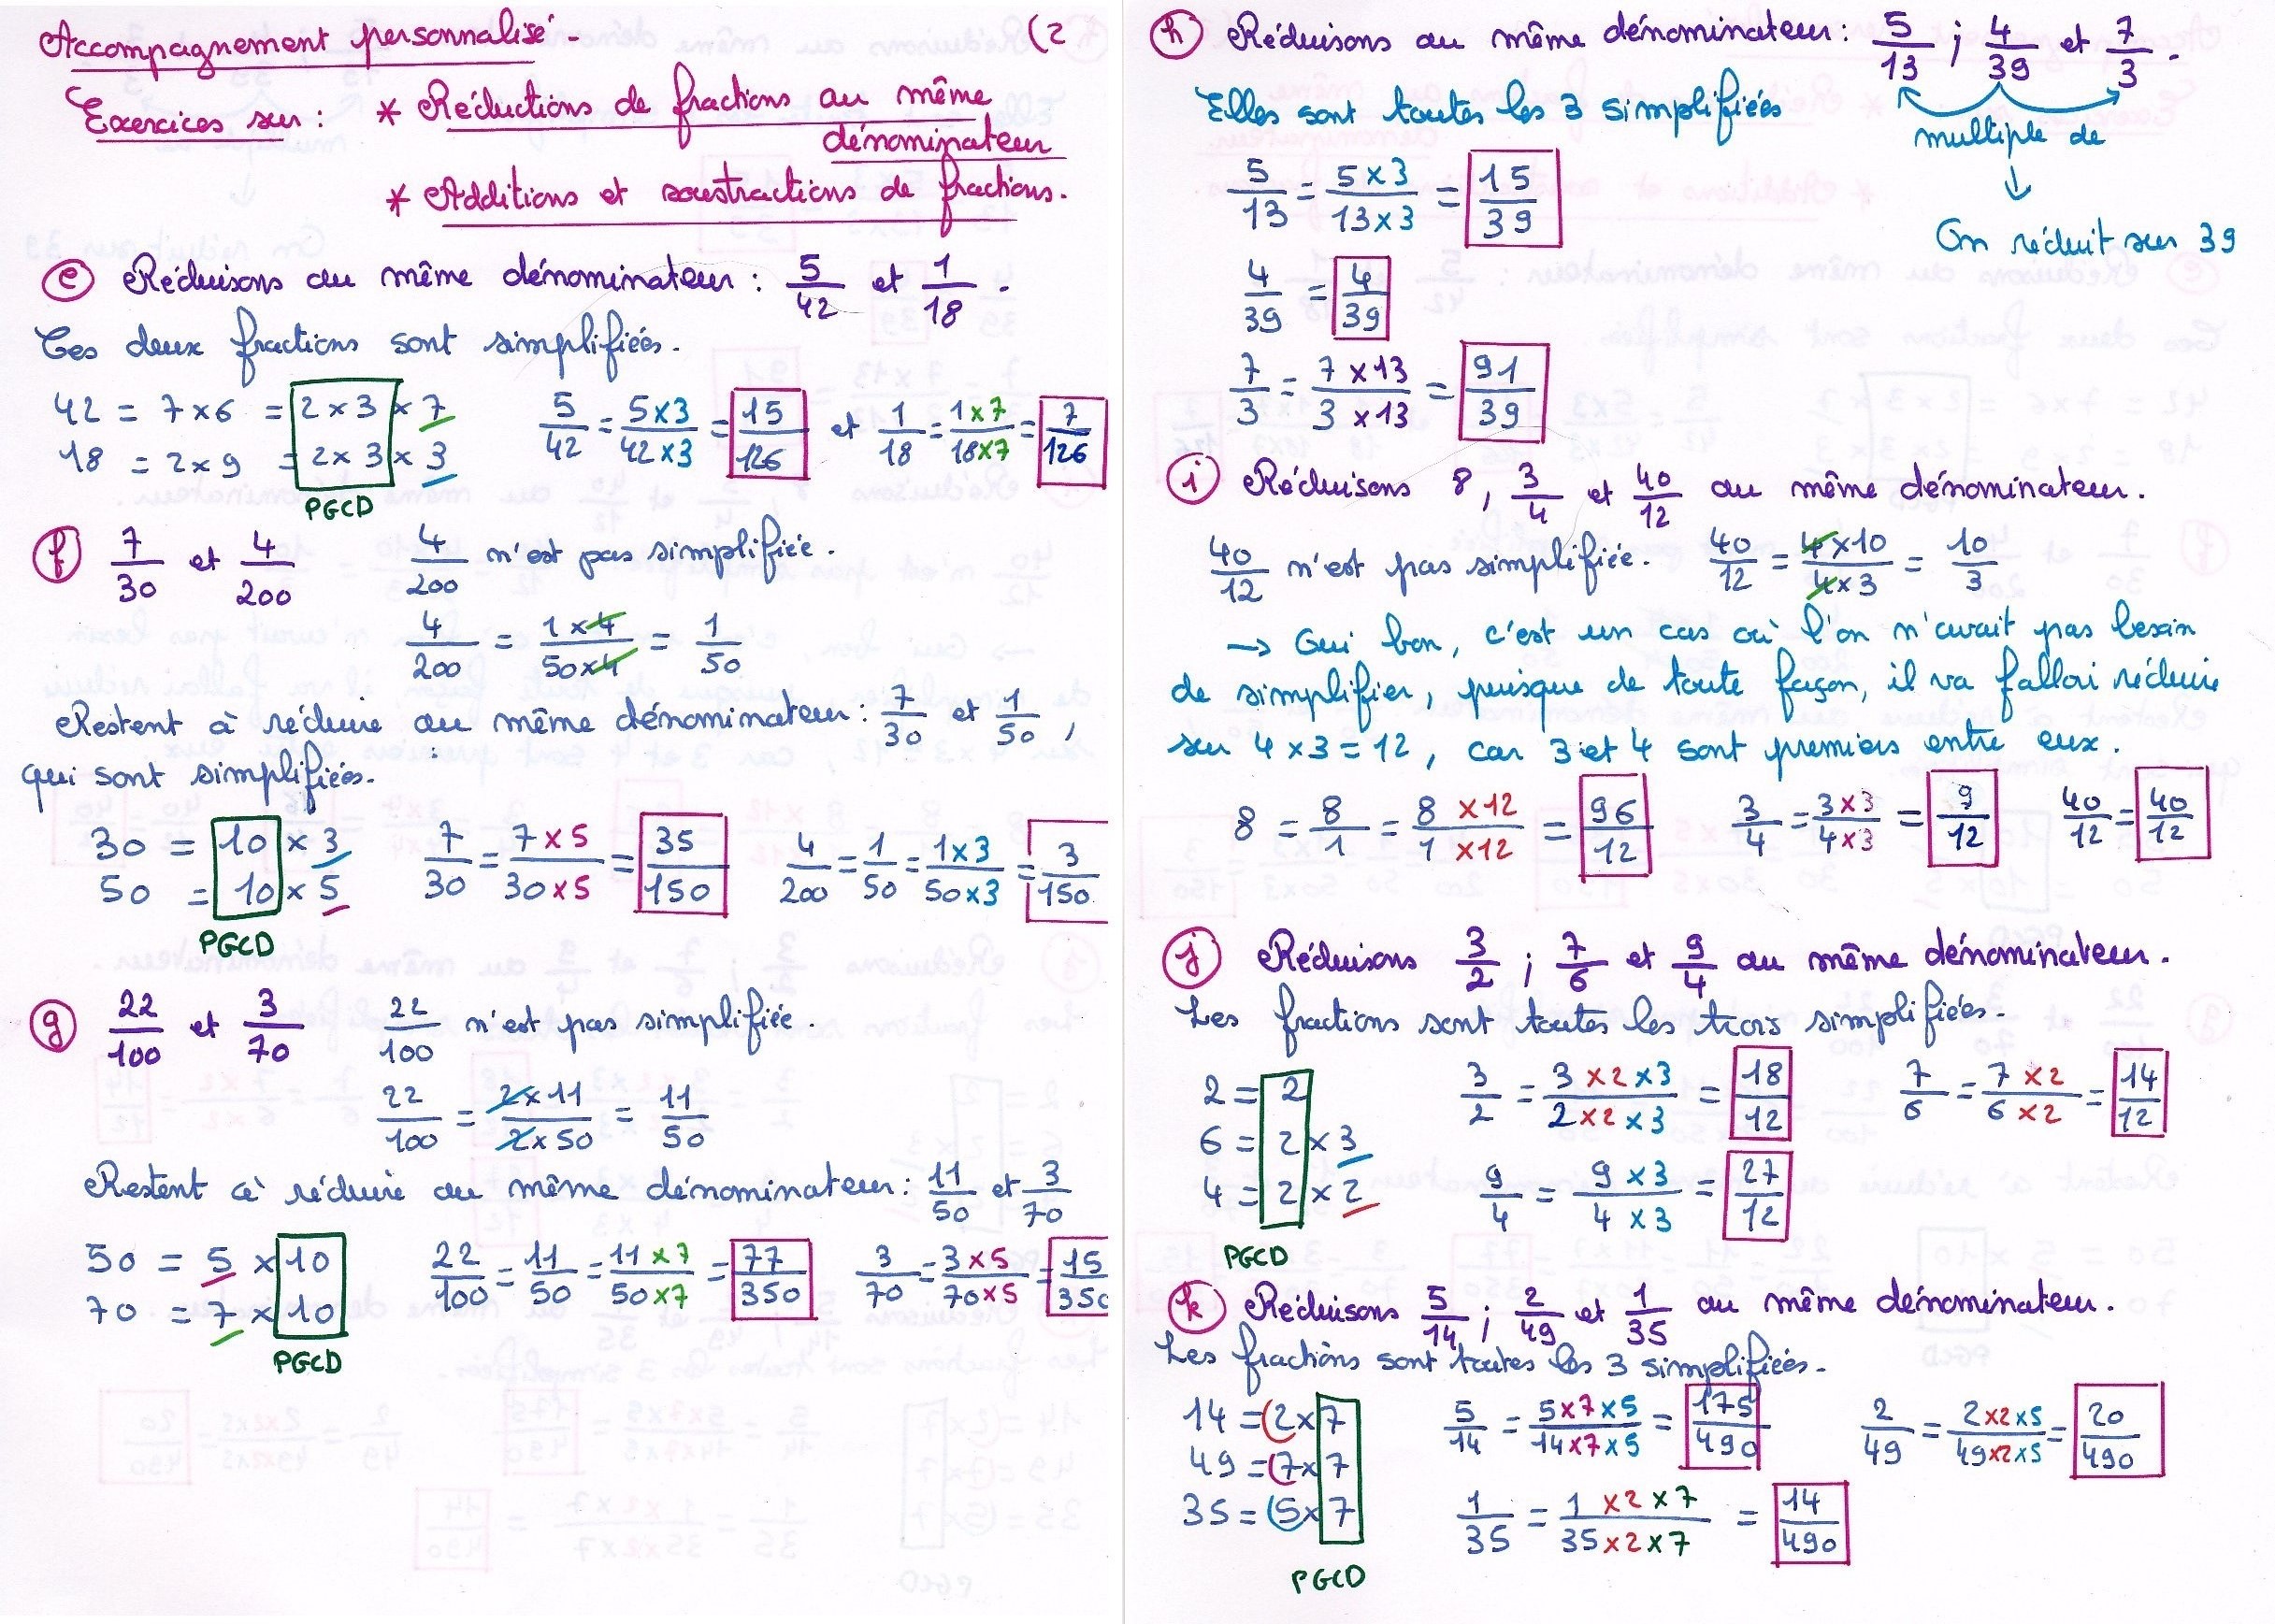 Accompagnement personnalisé - (2
Exercices sur : * Réductions de fractions au même
dénominateur
* Additions et soustractions de fractions.
e Réduisons au même dénominateur : 5/42 et 1/18 .
Ces deux fractions sont simplifiées.
42 = 7 x 6 = 2 x 3 x 7 5/42 = 5x3/42x3 = 15/126 et 1/18 = 1x7/18x7 = 7/126
18 = 2 x 9 = 2 x 3 x 3
PGCD
f 7/30 et 4/200 4/200 n'est pas simplifiée.
4/200 = 1x4/50x4 = 1/50
Restent à réduire au même dénominateur : 7/30 et 1/50 ,
qui sont simplifiées.
30 = 10 x 3 7/30 = 7x5/30x5 = 35/150 4/200 = 1/50 = 1x3/50x3 = 3/150
50 = 10 x 5
PGCD
g 22/100 et 3/70 22/100 n'est pas simplifiée.
22/100 = 2x11/2x50 = 11/50
Restent à réduire au même dénominateur : 11/50 et 3/70
50 = 5 x 10 22/100 = 11/50 = 11x7/50x7 = 77/350 3/70 = 3x5/70x5 = 15/350
70 = 7 x 10
PGCD
h Réduisons au même dénominateur : 5/13 ; 4/39 et 7/3 .
Elles sont toutes les 3 simplifiées
multiple de
↓
5/13 = 5x3/13x3 = 15/39
On réduit sur 39
4/39 = 4/39
7/3 = 7x13/3x13 = 91/39
i Réduisons 8, 3/4 et 40/12 au même dénominateur.
40/12 n'est pas simplifiée. 40/12 = 4x10/4x3 = 10/3
→ Oui bon, c'est un cas où l'on n'avait pas besoin
de simplifier, puisque de toute façon, il va falloi réduire
sur 4 x 3 = 12, car 3 et 4 sont premiers entre eux.
8 = 8/1 = 8x12/1x12 = 96/12 3/4 = 3x3/4x3 = 9/12 40/12 = 40/12
j Réduisons 3/2 ; 7/6 et 9/4 au même dénominateur.
Les fractions sont toutes les trois simplifiées.
2 = 2 3/2 = 3x2x3/2x2x3 = 18/12 7/6 = 7x2/6x2 = 14/12
6 = 2 x 3
4 = 2 x 2 9/4 = 9x3/4x3 = 27/12
PGCD
k Réduisons 5/14 ; 2/49 et 1/35 au même dénominateur.
Les fractions sont toutes les 3 simplifiées.
14 = (2x7 5/14 = 5x7x5/14x7x5 = 175/490 2/49 = 2x2x5/49x2x5 = 20/490
49 = (7x7
35 = (5x7 1/35 = 1x2x7/35x2x7 = 14/490
PGCD